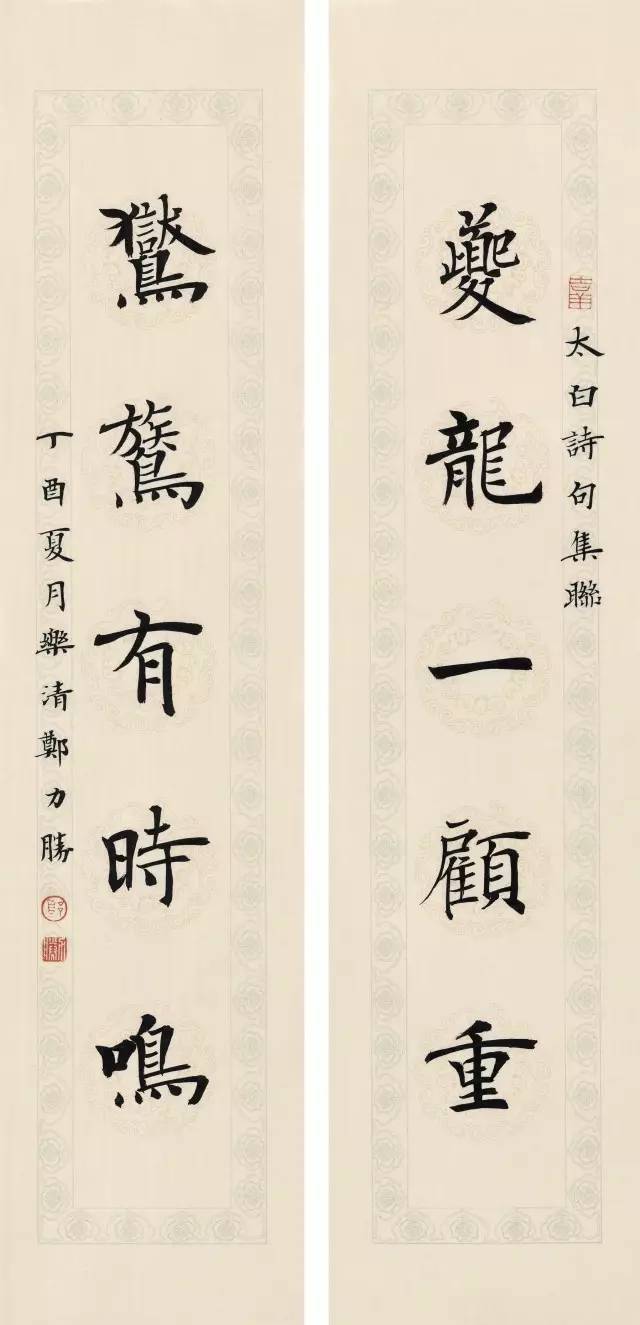 太白詩句集聯
夔龍一顧重
鸑鷟有時鳴
丁酉夏月樂清鄭力勝